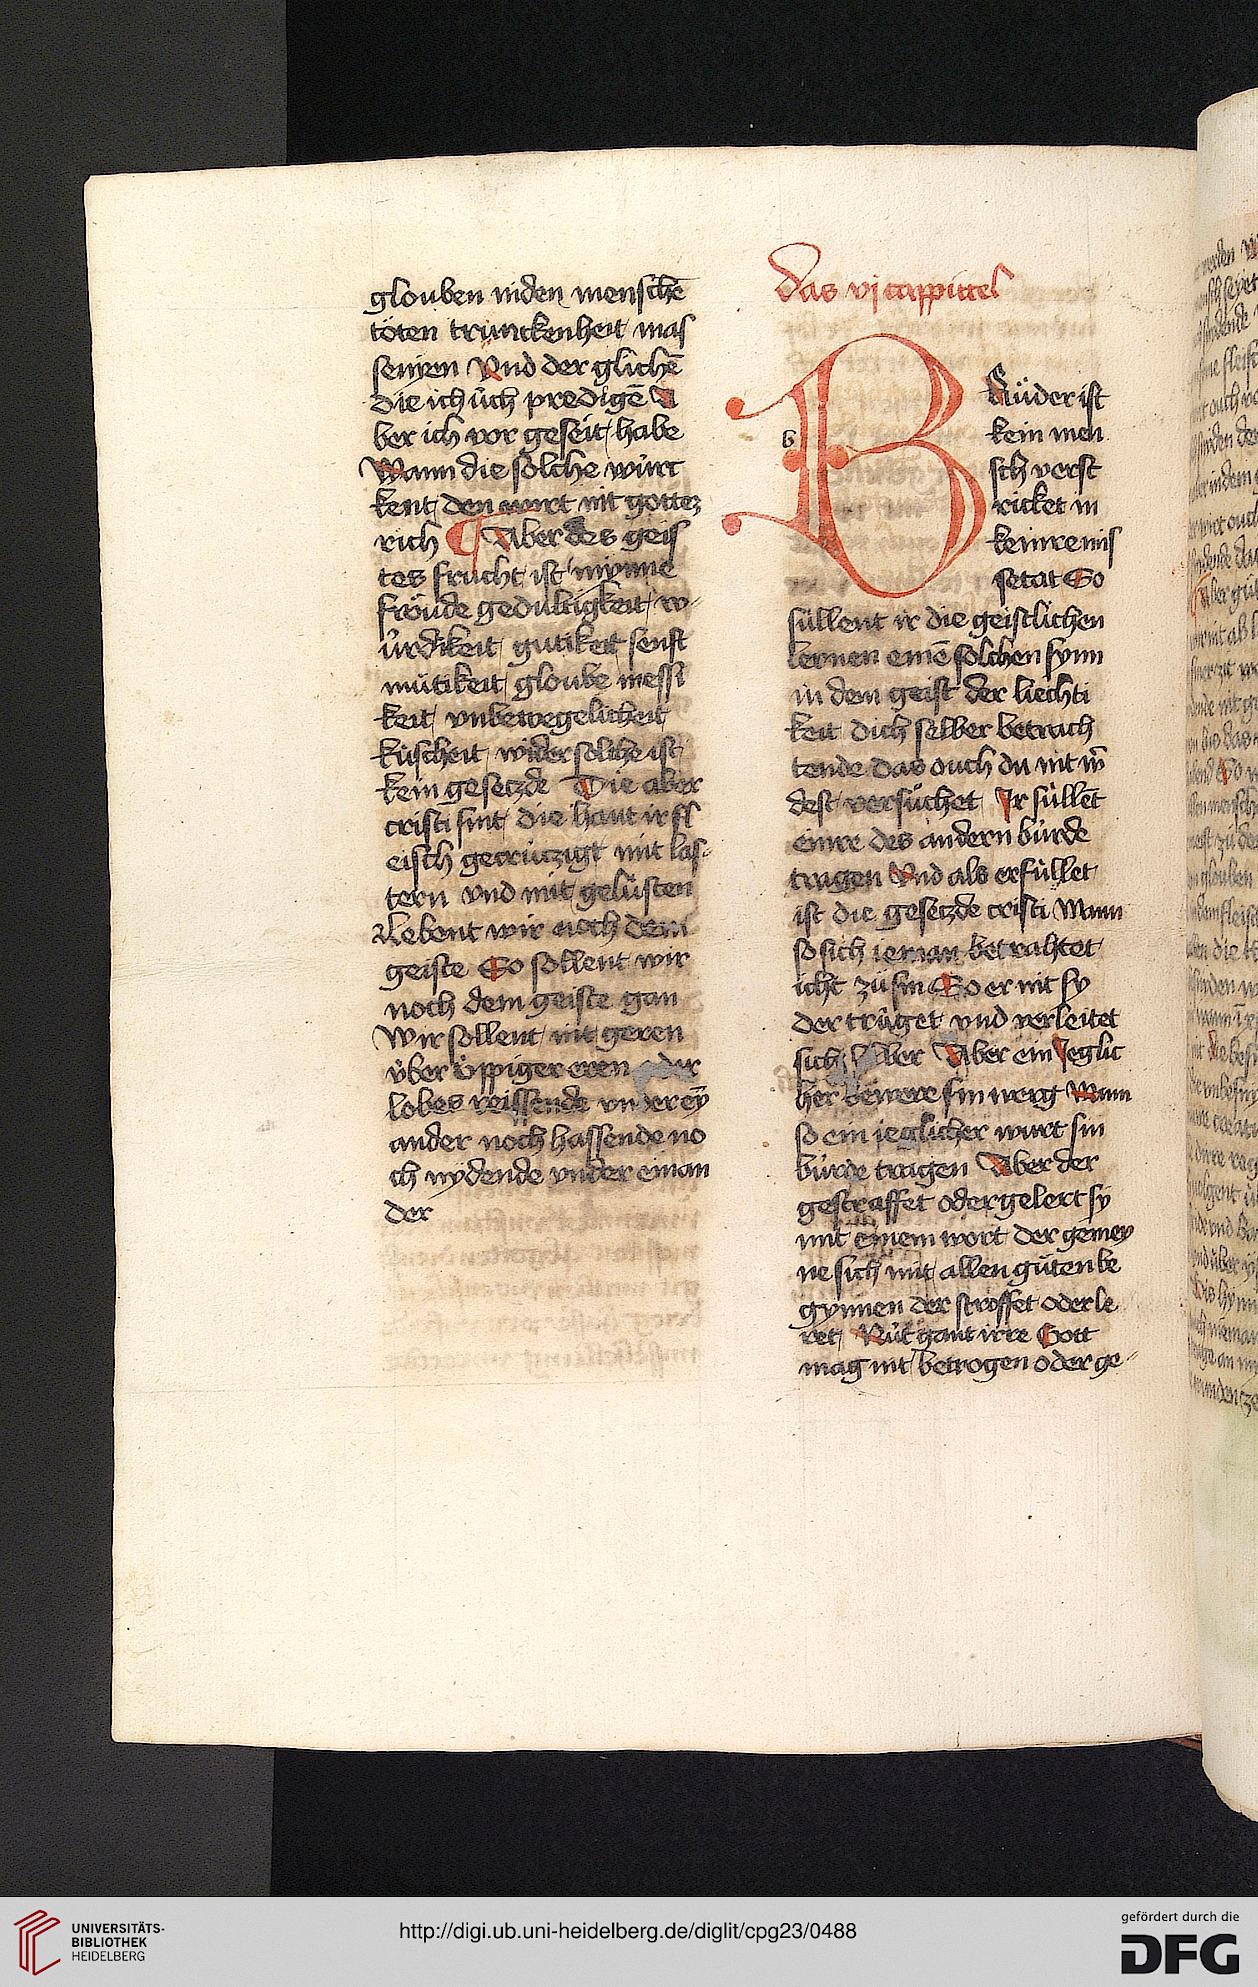 glouben niden menschē
töten trunckenheit mas
senyen Vnd der glichē
die ich üch predigē A
ber ich vor geseit habe
Wann die solche würt
kent den wurt nit gottez
rich ¶ Aber des geis
tes frucht ist mynne
fröude gedultigkeit w
ürdikeit gutikeit senft
mütikeit gloube messi
keit vnbewegelicheit
küscheit wider solche ist
kein gesetzde Die aber
cristi sint die hant ir fl
eisch gecrützigt mit las
tern vnd mit gelüsten
Lebent wir noch dem
geiste So sollent wir
noch dem geiste gan
Wir sollent nit geren
über üppiger eren oder
lobes reissende vnder eȳ
ander noch hassende no
ch nydende vnder einan
der
Das vj cappittel
b
B Rüder ist
kein men
sch verst
ricket in
keinre mis
setat So
süllent ir die geistlichen
lernen einē solchen synn
in dem geist der liechti
keit dich selber betrach
tende das ouch du nit w̄
dest versüchet Ir süllēt
einre des andern bürde
tragen Vnd als erfüllet
ist die gesetzde cristi Wann
so sich ieman betrahtet
icht zü sin So er nit sy
der trüget vnd verleitet
sich selber Aber ein Jeglic
her bewere sin werg Wann
so ein ieglicher wurt sin
bürde tragen Aber der
gestraffet oder gelert sy
mit einem wort der gemey
ne sich mit allen güten be
gynnen der stroffet oder le
ret Nüt hant irre Gott
mag nit betrogen oder ge
UNIVERSITÄTS-
BIBLIOTHEK
HEIDELBERG
http://digi.ub.uni-heidelberg.de/diglit/cpg23/0488
gefördert durch die
DFG